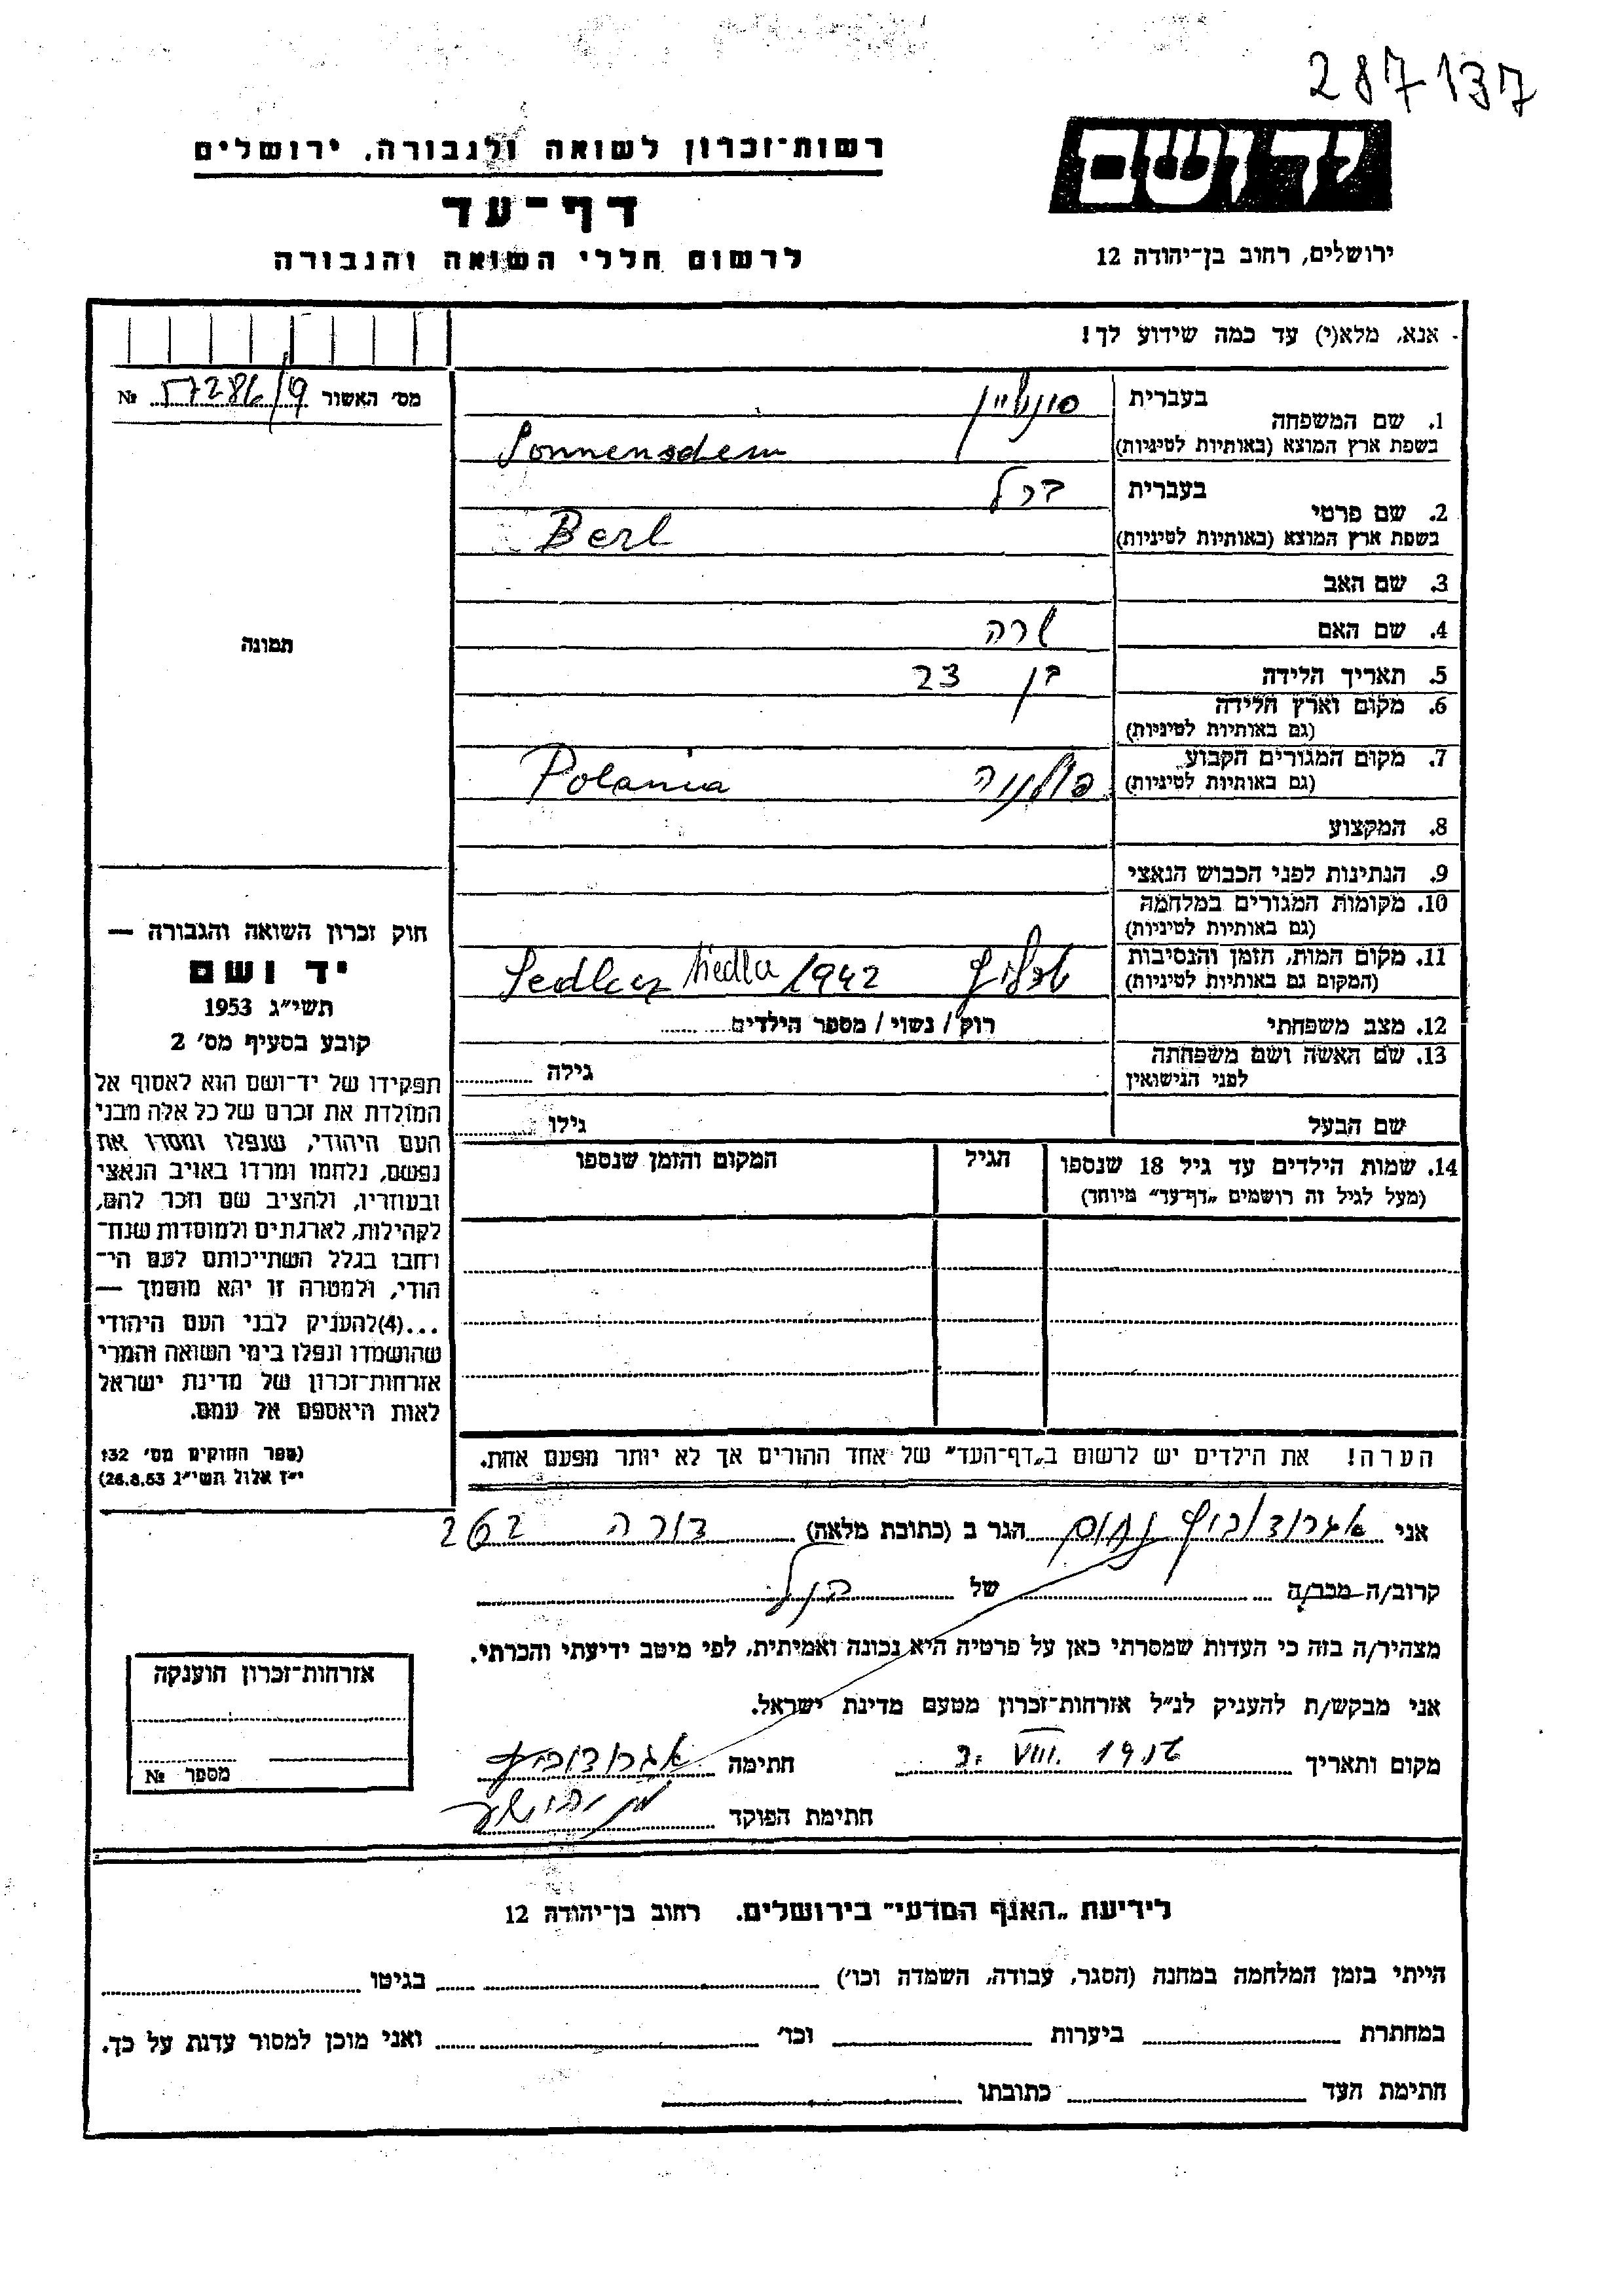 287137
רשות־זכרון לשואה ולגבורה, ירושלים
דף־עד
לרשום חללי השואה והגבורה
יד ושם
ירושלים, רחוב בן־יהודה 12
אנא, מלא(י) עד כמה שידוע לך!
מס׳ האשור 57286/9 №
תמונה
1. שם המשפחה
בעברית
בשפת ארץ המוצא (באותיות לטיניות)
2. שם פרטי
בעברית ברל
בשפת ארץ המוצא (באותיות לטיניות) Berl
3. שם האב
4. שם האם שרה
5. תאריך הלידה בן 23
6. מקום וארץ הלידה
(גם באותיות לטיניות)
7. מקום המגורים הקבוע
(גם באותיות לטיניות) פולניה Polania
8. המקצוע
9. הנתינות לפני הכבוש הנאצי
10. מקומות המגורים במלחמה
(גם באותיות לטיניות)
11. מקום המות, הזמן והנסיבות
(המקום גם באותיות לטיניות) 1942
12. מצב משפחתי רוק / נשוי / מספר הילדים
13. שם האשה ושם משפחתה
לפני הנישואין גילה
שם הבעל גילו
14. שמות הילדים עד גיל 18 שנספו הגיל המקום והזמן שנספו
(מעל לגיל זה רושמים „דף־עד״ מיוחד)
הערה! את הילדים יש לרשום ב„דף־העד״ של אחד ההורים אך לא יותר מפעם אחת.
חוק זכרון השואה והגבורה —
יד ושם
תשי״ג 1953
קובע בסעיף מס׳ 2
תפקידו של יד־ושם הוא לאסוף אל
המולדת את זכרם של כל אלה מבני
העם היהודי, שנפלו ומסרו את
נפשם, נלחמו ומרדו באויב הנאצי
ובעוזריו, ולהציב שם וזכר להם,
לקהילות, לארגונים ולמוסדות שנח־
רחבו בגלל השתייכותם לעם הי־
הודי, ולמטרה זו יהא מוסמך —
...(4)להעניק לבני העם היהודי
שהושמדו ונפלו בימי השואה והמרי
אזרחות־זכרון של מדינת ישראל
לאות היאספם אל עמם.
(ספר החוקים מס׳ 132
י״ז אלול תשי״ג 26.8.53)
אני נחום הגר ב (כתובת מלאה) דורה 262
קרוב/ה מכר/ה של הנ״ל
מצהיר/ה בזה כי העדות שמסרתי כאן על פרטיה היא נכונה ואמיתית, לפי מיטב ידיעתי והכרתי.
אני מבקש/ת להעניק לנ״ל אזרחות־זכרון מטעם מדינת ישראל.
מקום ותאריך 3. VIII. 1956 חתימה
חתימת הפוקד
אזרחות־זכרון הוענקה
מספר №
לידיעת „האגף המדעי״ בירושלים, רחוב בן־יהודה 12
הייתי בזמן המלחמה במחנה (הסגר, עבודה, השמדה וכו׳) בגיטו
במחתרת ביערות וכו׳ ואני מוכן למסור עדות על כך.
חתימת העד כתובתו